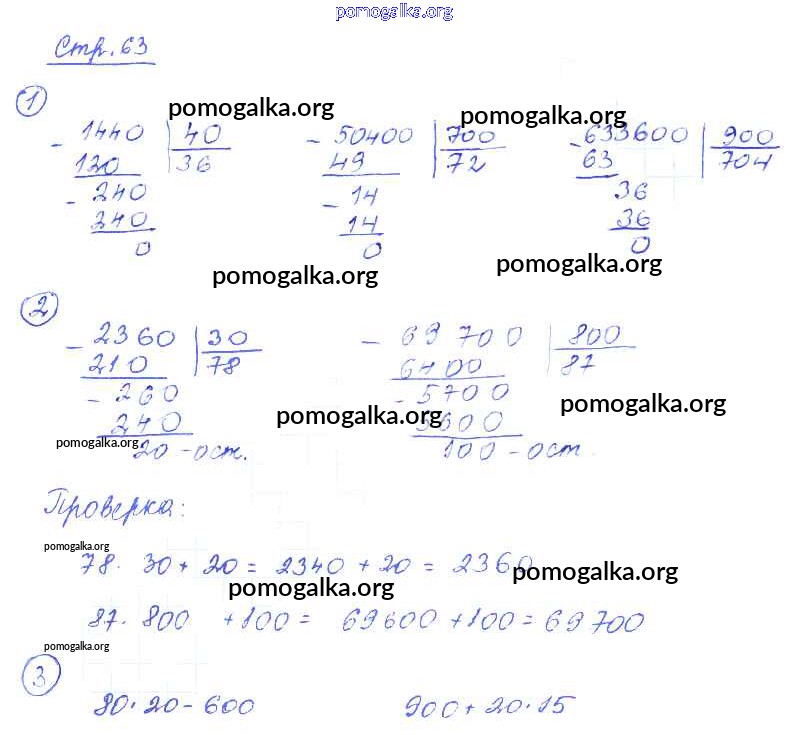 pomogalka.org
Стр. 63
1
pomogalka.org pomogalka.org pomogalka.org
- 1440 | 40 - 50400 | 700 - 633600 | 900
120 | 36 49 | 72 63 | 704
- 240 - 14 36
240 14 36
0 0 0
pomogalka.org pomogalka.org
2
- 2360 | 30 - 69 700 | 800
210 | 78 6400 | 87
- 260 - 5700
240 5600
pomogalka.org pomogalka.org
pomogalka.org
20 - ост. 100 - ост.
Проверка:
pomogalka.org
78 · 30 + 20 = 2340 + 20 = 2360
pomogalka.org pomogalka.org
87 · 800 + 100 = 69600 + 100 = 69700
pomogalka.org pomogalka.org
3
80 · 20 - 600 900 + 20 · 15